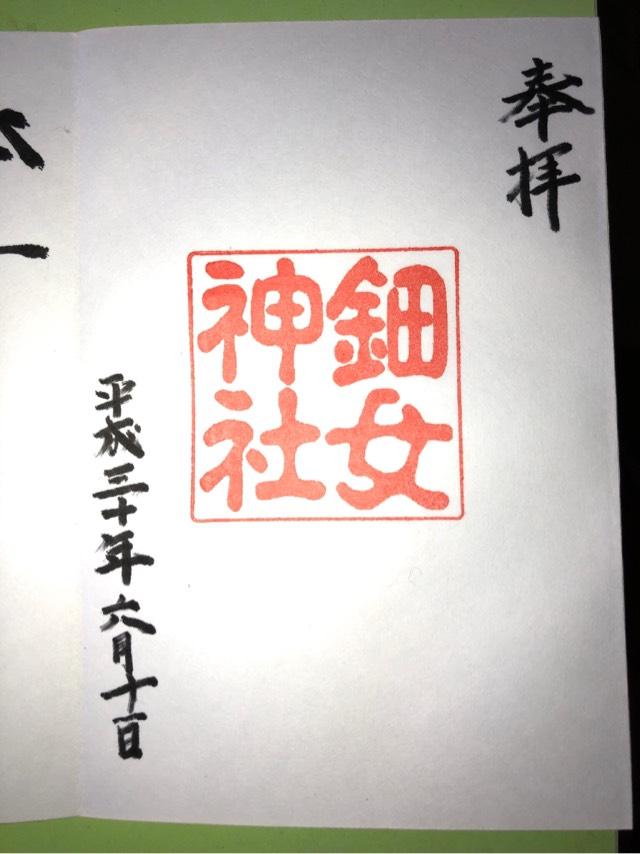 奉拝
鈿女
神社
平成三十年六月十一日
一